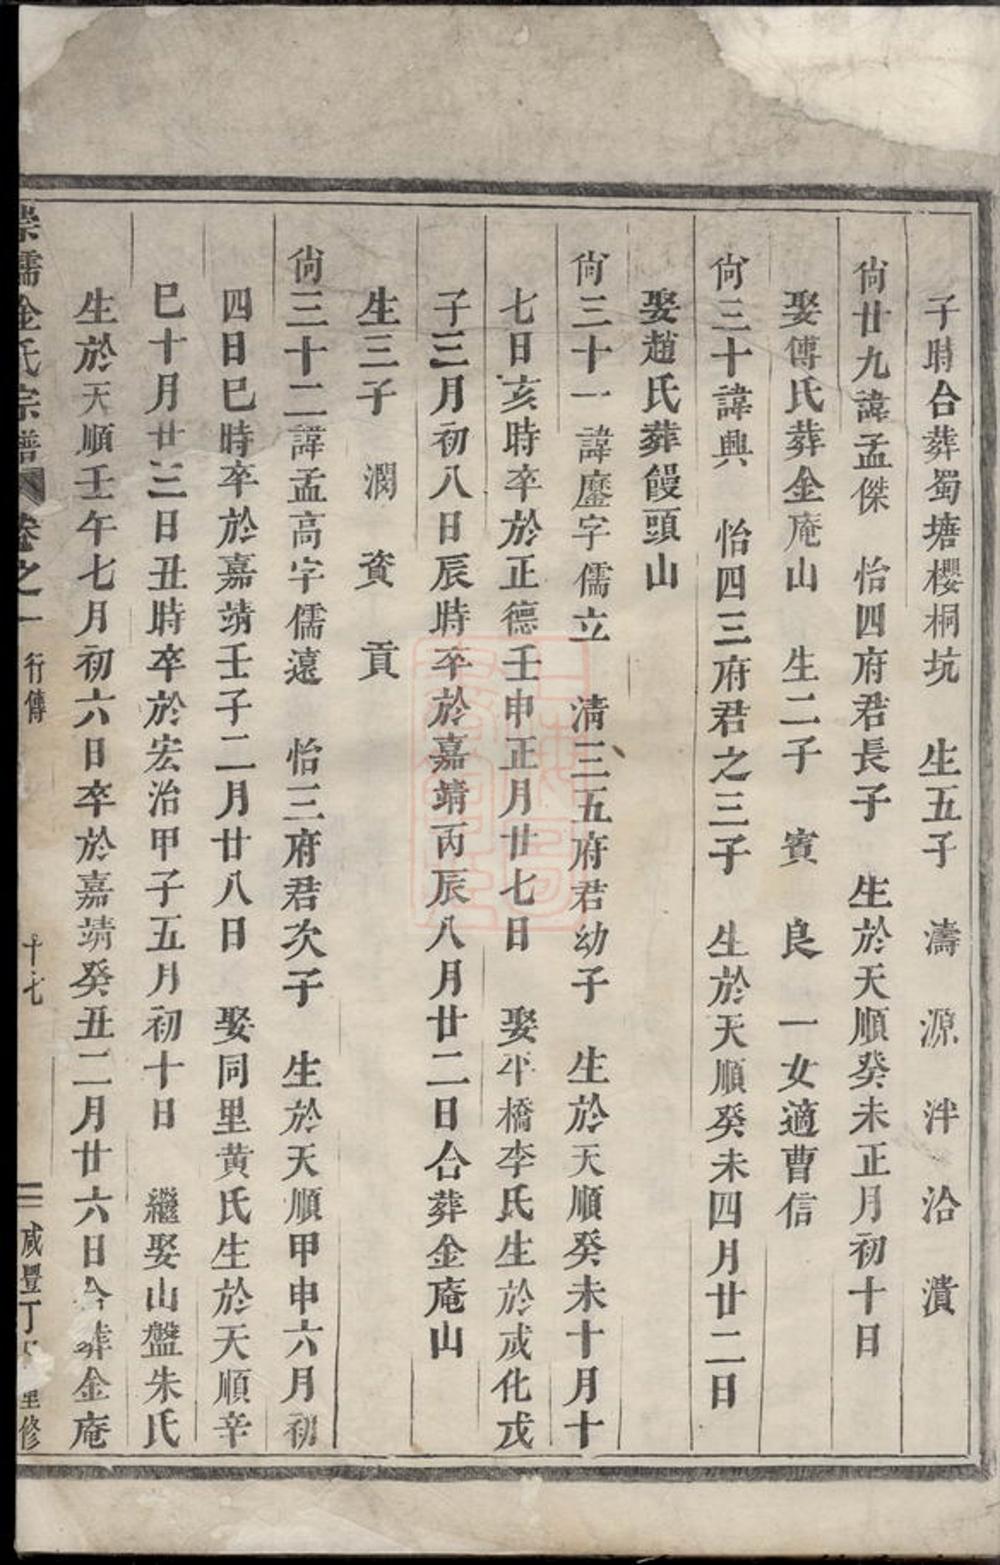 子時合葬蜀塘櫻桐坑　生五子　濤　源　泮　洽　濆
尙廿九諱孟傑　怡四府君長子　生於天順癸未正月初十日
娶傅氏葬金庵山　生二子　賓　良　一女適曹信
尙三十諱興　怡四三府君之三子　生於天順癸未四月廿二日
娶趙氏葬饅頭山
尙三十一諱鏖字儒立　淸三五府君幼子　生於天順癸未十月十
七日亥時卒於正德壬申正月廿七日　娶平橋李氏生於成化戊
子三月初八日辰時卒於嘉靖丙辰八月廿二日合葬金庵山
生三子　潤　資　貢
尙三十二諱孟高字儒遠　怡三府君次子　生於天順甲申六月初
四日巳時卒於嘉靖壬子二月廿八日　娶同里黄氏生於天順辛
巳十月廿三日丑時卒於宏治甲子五月初十日　繼娶山盤朱氏
生於天順壬午七月初六日卒於嘉靖癸丑二月廿六日合葬金庵
崇儒金氏宗譜　卷之一　行傳　十七　咸豐丁　重修